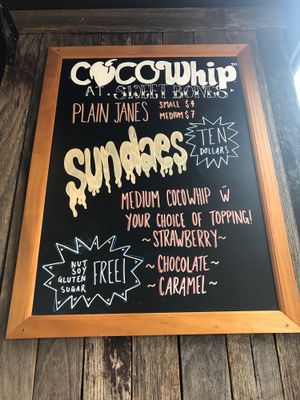 COCOWhip™
AT SWEET BONES
PLAIN JANES SMALL $4
MEDIUM $7
SUNDAES
TEN
DOLLARS
MEDIUM COCOWHIP W̄
YOUR CHOICE OF TOPPING!
~STRAWBERRY~
~CHOCOLATE~
~CARAMEL~
NUT
SOY
GLUTEN
SUGAR
FREE!